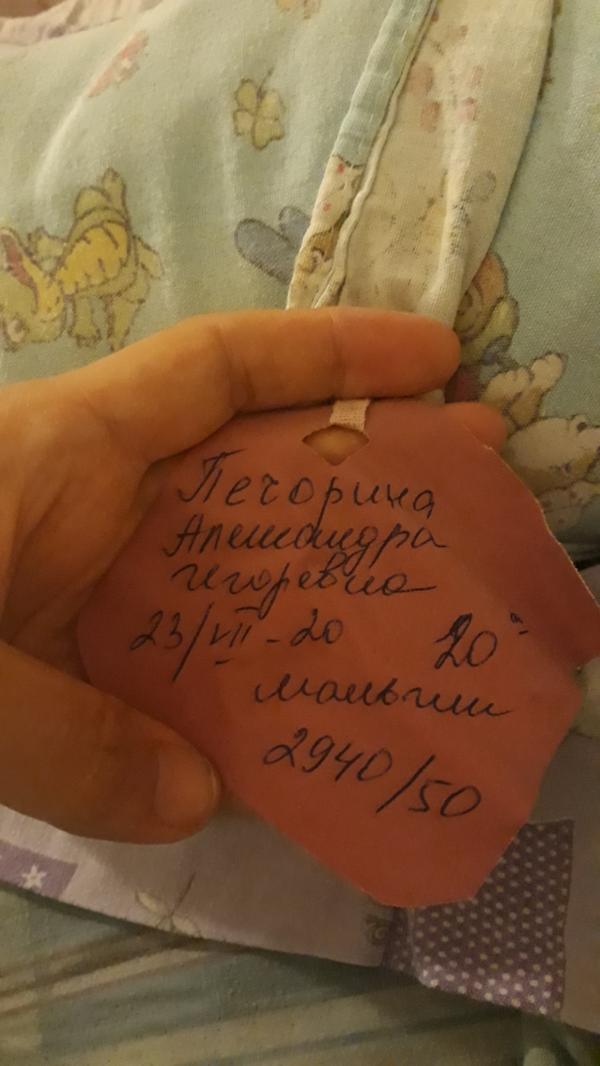 Печорина
Александра
Игоревна
23/VII-20 20ᵃ
мальчик
2940/50